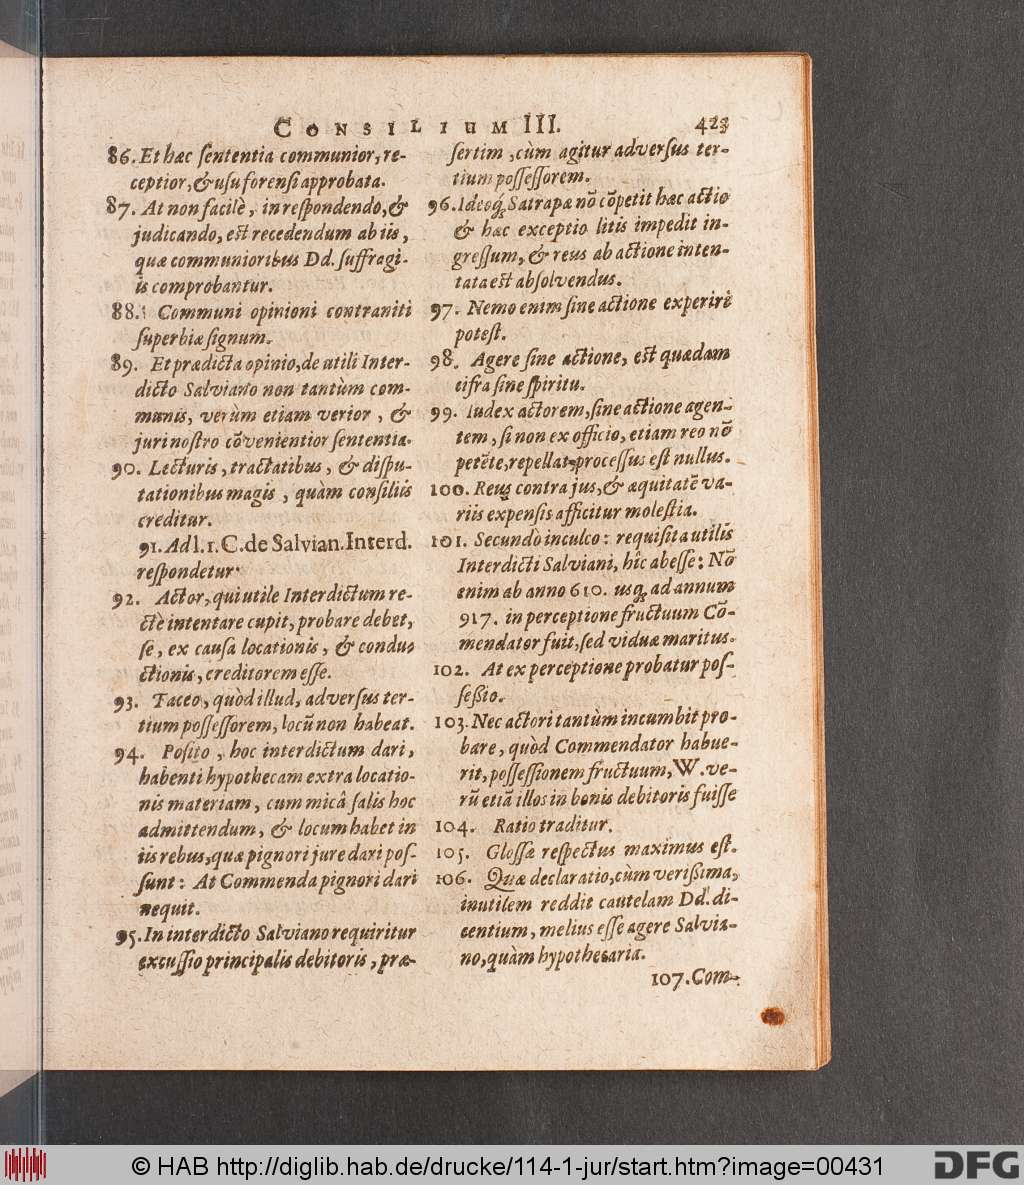 CONSILIUM III. 423
86. Et hæc sententia communior, re-
ceptior, & usu forensi approbata.
87. At non facilè, in respondendo, &
judicando, est recedendum ab iis,
quæ communioribus Dd. suffragi-
is comprobantur.
88. Communi opinioni contraniti
superbiæ signum.
89. Et prædicta opinio, de utili Inter-
dicto Salviano non tantùm com-
munis, verùm etiam verior, &
juri nostro cõvenientior sententia.
90. Lecturis, tractatibus, & dispu-
tationibus magis, quàm consiliis
creditur.
91. Ad l. 1. C. de Salvian. Interd.
respondetur.
92. Actor, qui utile Interdictum re-
ctè intentare cupit, probare debet,
se, ex causa locationis, & condu-
ctionis, creditorem esse.
93. Taceo, quòd illud, adversus ter-
tium possessorem, locũ non habeat.
94. Posito, hoc interdictum dari,
habenti hypothecam extra locatio-
nis materiam, cum micâ salis hoc
admittendum, & locum habet in
iis rebus, quæ pignori jure dari pos-
sunt: At Commenda pignori dari
nequit.
95. In interdicto Salviano requiritur
excussio principalis debitoris, præ-
sertim, cùm agitur adversus ter-
tium possessorem.
96. Ideoq́; Satrapæ nõ cõpetit hæc actio
& hæc exceptio litis impedit in-
gressum, & reus ab actione inten-
tata est absolvendus.
97. Nemo enim sine actione experiri
potest.
98. Agere sine actione, est quædam
cifra sine spiritu.
99. Iudex actorem, sine actione agen-
tem, si non ex officio, etiam reo nõ
petẽte, repellat, processus est nullus.
100. Reus contra jus, & æquitatẽ va-
riis expensis afficitur molestia.
101. Secundò inculco: requisita utilis
Interdicti Salviani, hîc abesse: Nõ
enim ab anno 610. usq́; ad annum
917. in perceptione fructuum Cõ-
mendator fuit, sed viduæ maritus.
102. At ex perceptione probatur pos-
sessio.
103. Nec actori tantùm incumbit pro-
bare, quòd Commendator habue-
rit, possessionem fructuum, W. ve-
rũ etiã illos in bonis debitoris fuisse
104. Ratio traditur.
105. Glossæ respectus maximus est.
106. Quæ declaratio, cùm verissima,
inutilem reddit cautelam Dd. di-
centium, melius esse agere Salvia-
no, quàm hypothecaria.
107. Com-
© HAB http://diglib.hab.de/drucke/114-1-jur/start.htm?image=00431
DFG